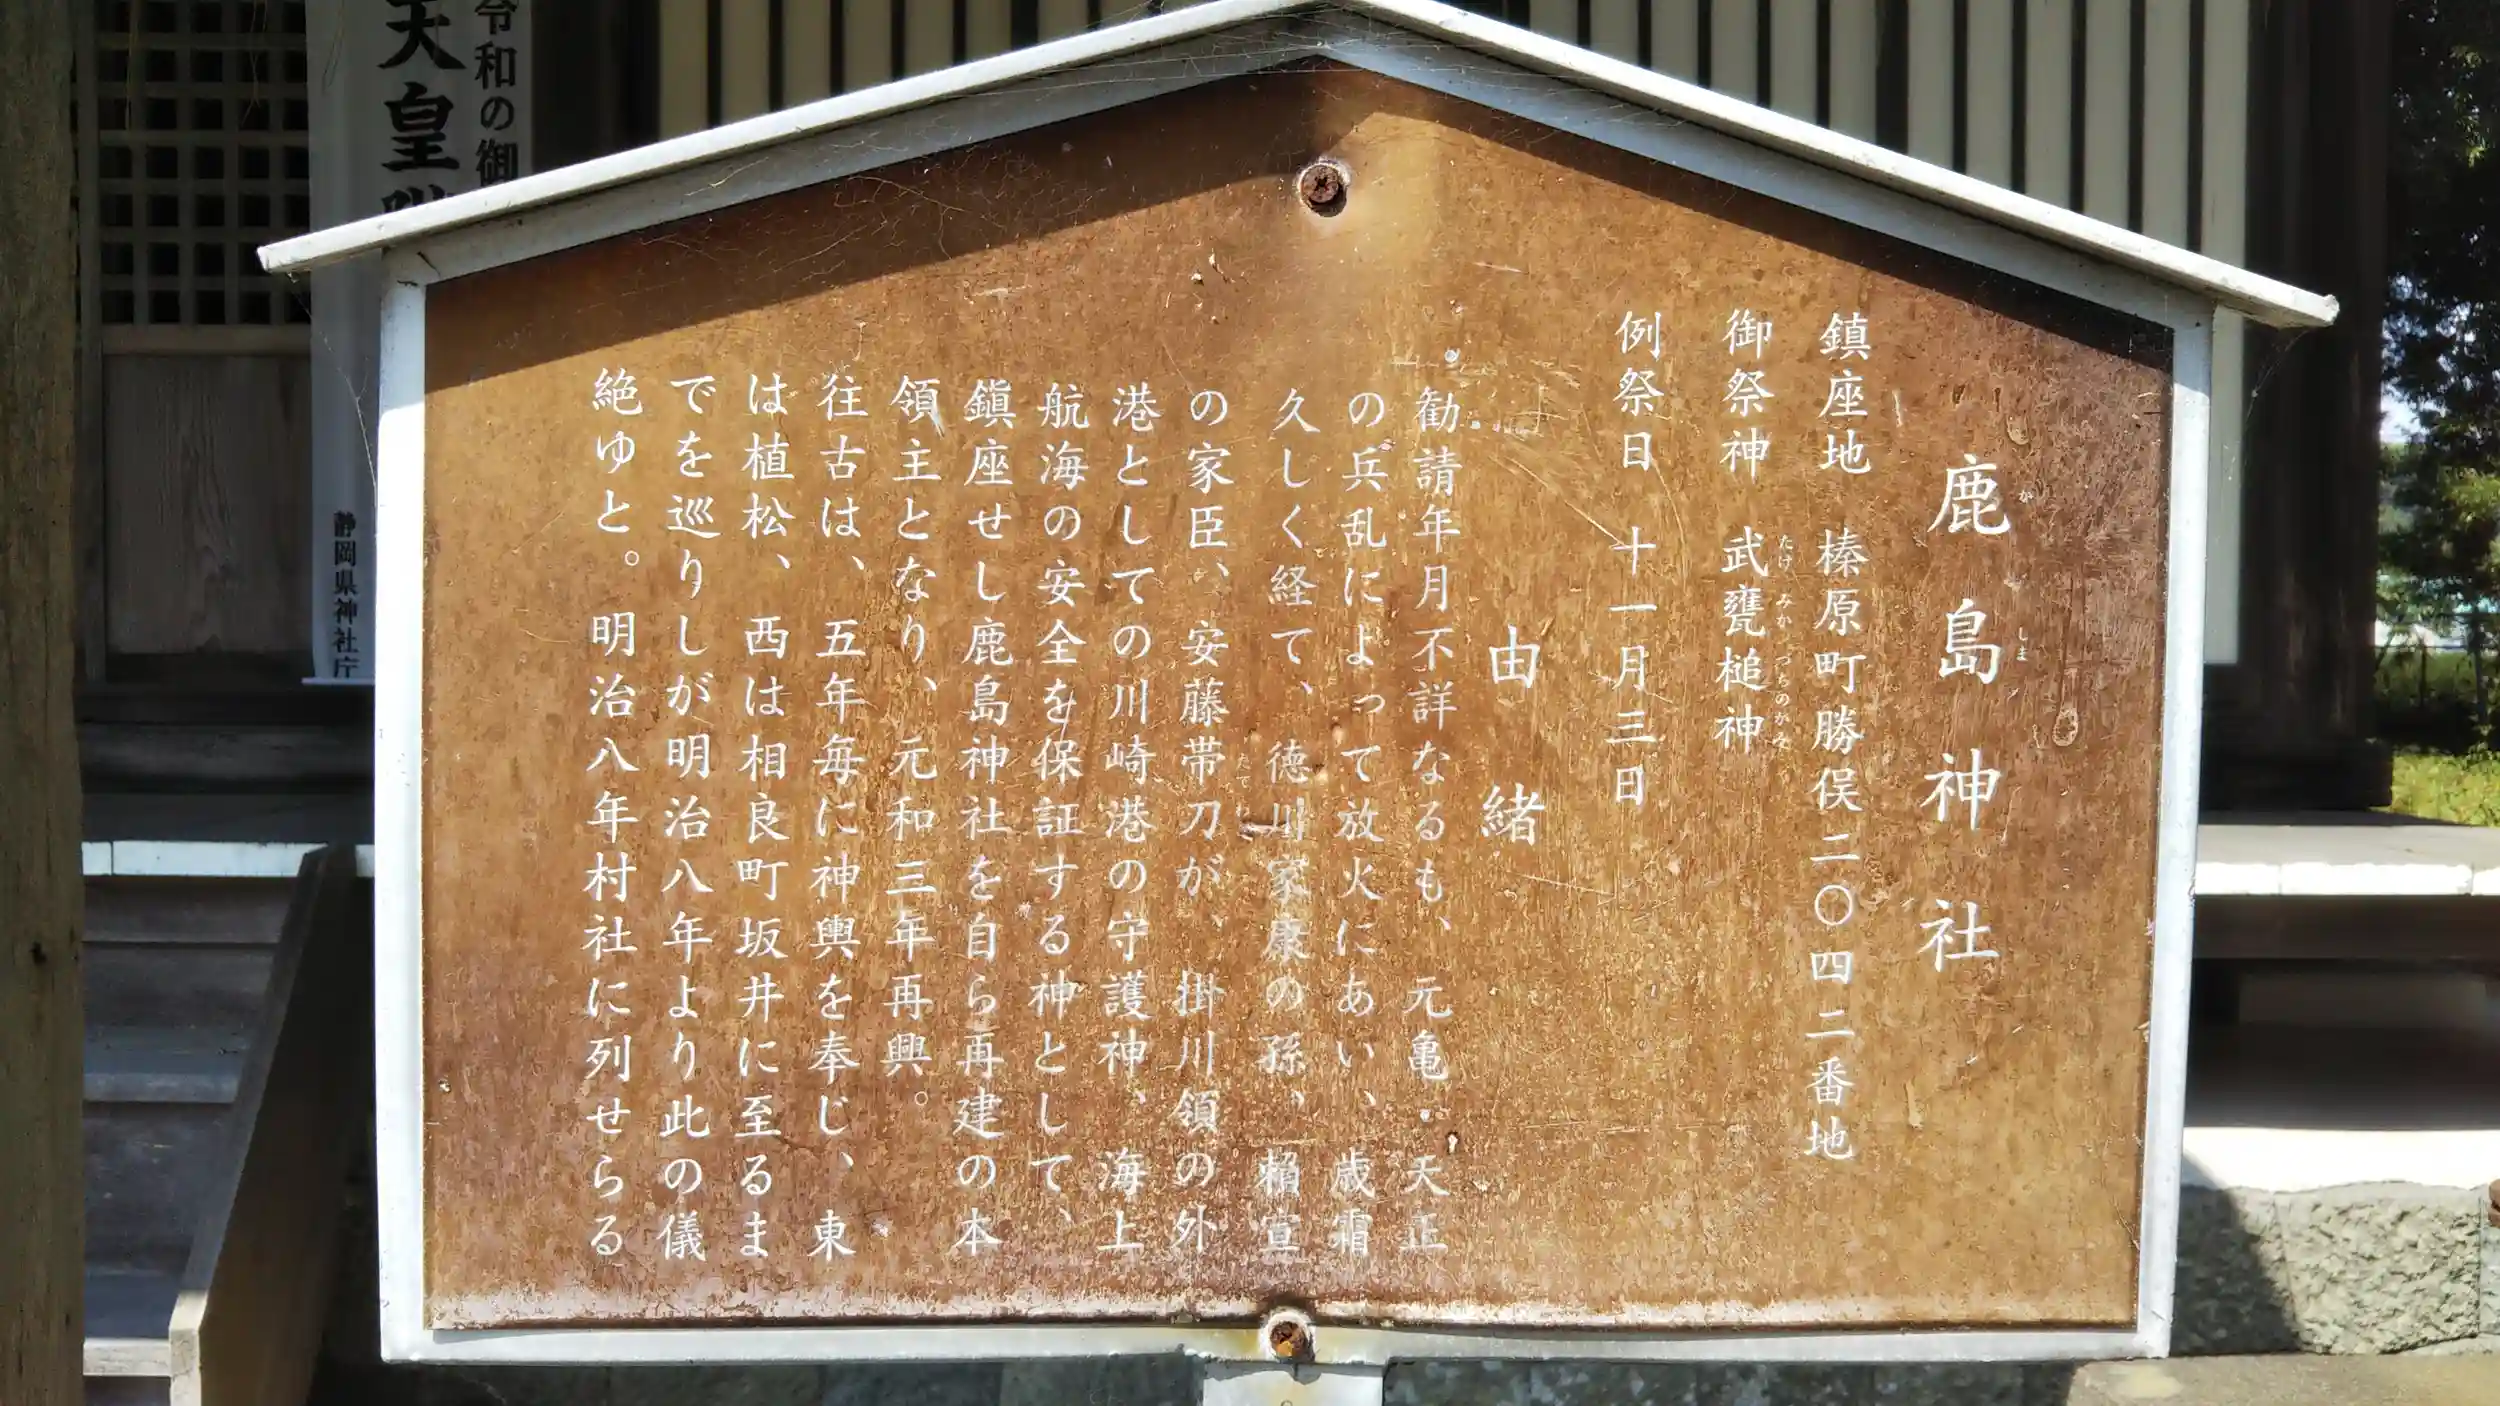 鹿島神社
かしま
鎮座地 榛原町勝俣二〇四二番地
御祭神 武甕槌神
たけみかづちのかみ
例祭日 十一月三日
由緒
勧請年月不詳なるも、元亀・天正
の兵乱によって放火にあい、歳霜
久しく経て、徳川家康の孫、頼宣
の家臣、安藤帯刀が、掛川領の外
港としての川崎港の守護神、海上
航海の安全を保証する神として、
鎭座せし鹿島神社を自ら再建の本
領主となり、元和三年再興。
往古は、五年毎に神輿を奉じ、東
は植松、西は相良町坂井に至るま
でを巡りしが明治八年より此の儀
絶ゆと。明治八年村社に列せらる
令和の御
天皇
静岡県神社庁